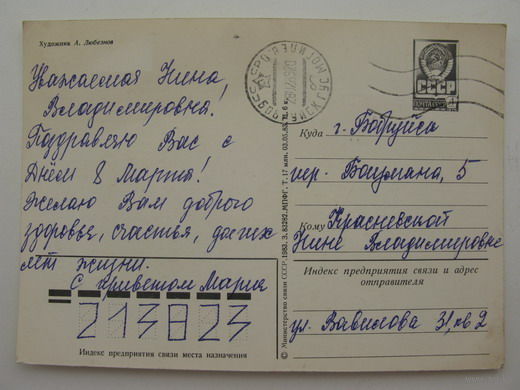 Художник А. Любезнов
Уважаемая Нина
Владимировна!
Поздравляю Вас с
Днём 8 Марта!
Желаю Вам доброго
здоровья, счастья, долгих
лет жизни.
С приветом Мария
213823
Индекс предприятия связи места назначения
© Министерство связи СССР, 1983. З. 83282. МПФГ. Т. 17 млн. 03.05.83. Ц. 6 к.
СССР
ПОЧТА
Куда г. Бобруйск
пер. Баумана, 5
Кому Красневской
Нине Владимировне
Индекс предприятия связи и адрес
отправителя
ул. Вавилова 31, кв 2